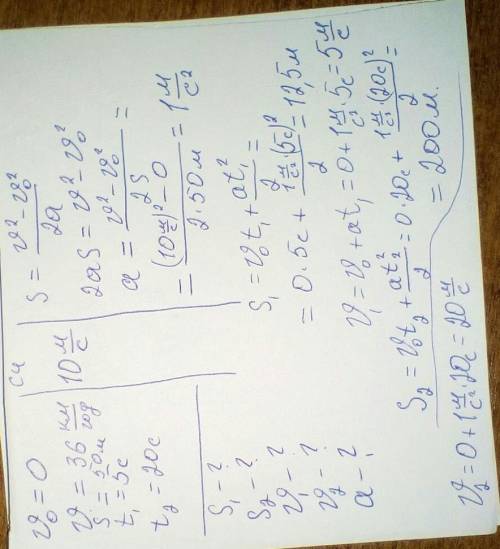 ϑ₀ = 0
ϑ = 36 км/год
S = 50м
t₁ = 5с
t₂ = 20с
S₁ - ?
S₂ - ?
ϑ₁ - ?
ϑ₂ - ?
a - ?
СИ
10 м/с
S = (ϑ² - ϑ₀²)/2a
2aS = ϑ² - ϑ₀²
a = (ϑ² - ϑ₀²)/2S =
= ((10 м/с)² - 0)/(2·50м) = 1 м/с²
S₁ = ϑ₀t₁ + at₁²/2 =
= 0·5с + (1 м/с²·(5с)²)/2 = 12,5м
ϑ₁ = ϑ₀ + at₁ = 0 + 1 м/с²·5с = 5 м/с
S₂ = ϑ₀t₂ + at₂²/2 = 0·20с + (1 м/с²·(20с)²)/2 =
= 200м.
ϑ₂ = 0 + 1 м/с²·20с = 20 м/с